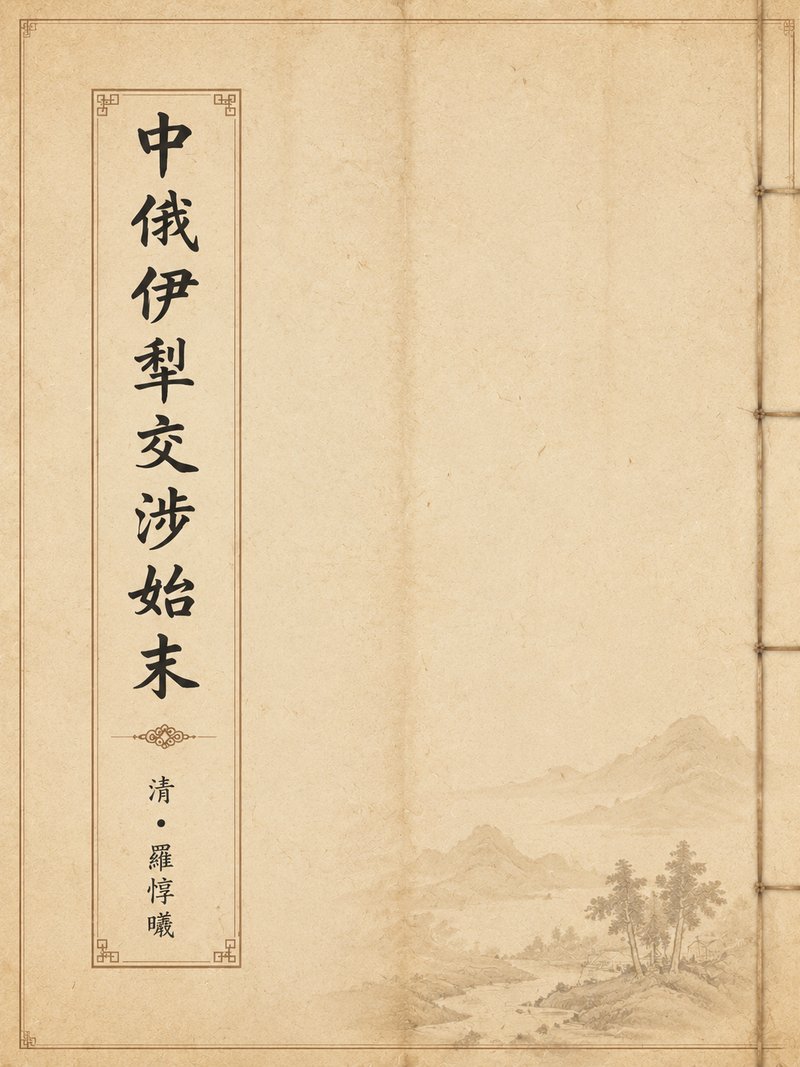 中俄伊犁交涉始末
清·羅惇曧